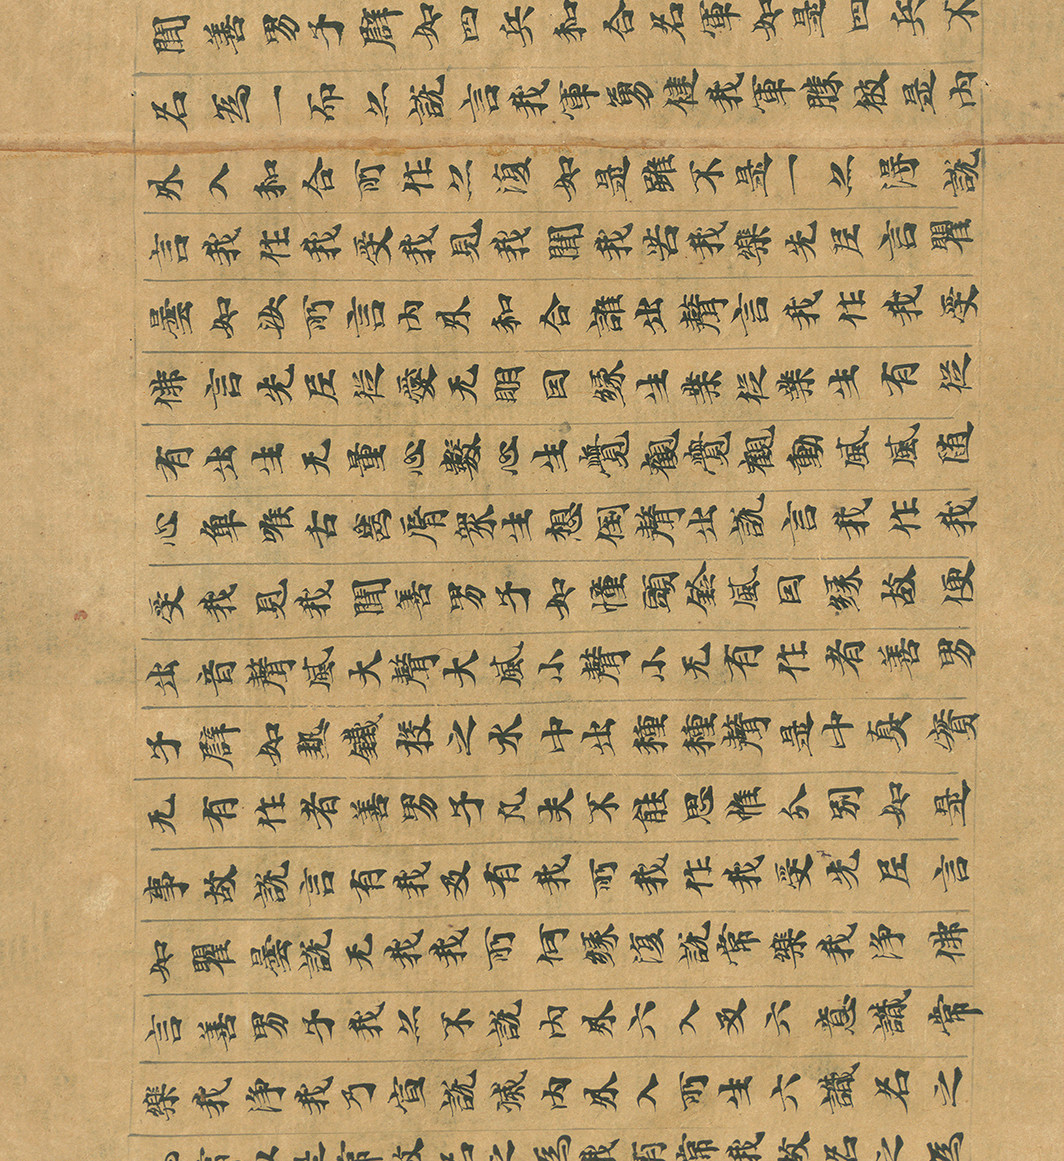 聞善男子譬如四兵和合名軍如是四兵不
名為一而亦說言我軍勇健我軍勝彼是內
外入和合所作亦復如是雖不是一亦得說
言我作我受我見我聞我苦我樂先尼言瞿
曇如汝所言內外和合誰出聲言我作我受
佛言先尼從愛无明因緣生業從業生有從
有出生无量心數心生覺觀覺觀動風風随
心喉舌齒脣眾生想倒聲出說言我作我
受我見我聞善男子如幢頭鈴風因緣故便
出音聲風大聲大風小聲小无有作者善男
子譬如熱鐵投之水中出種種聲是中真實
无有作者善男子凡夫不能思惟分別如是
事故說言有我及有我所我作我受先尼言
如瞿曇說无我我所何緣復說常樂我淨佛
言善男子我亦不說內外六入及六意識常
樂我淨我乃宣說滅內外入所生六識名之
為常以是常故名之為我有常我故名之為